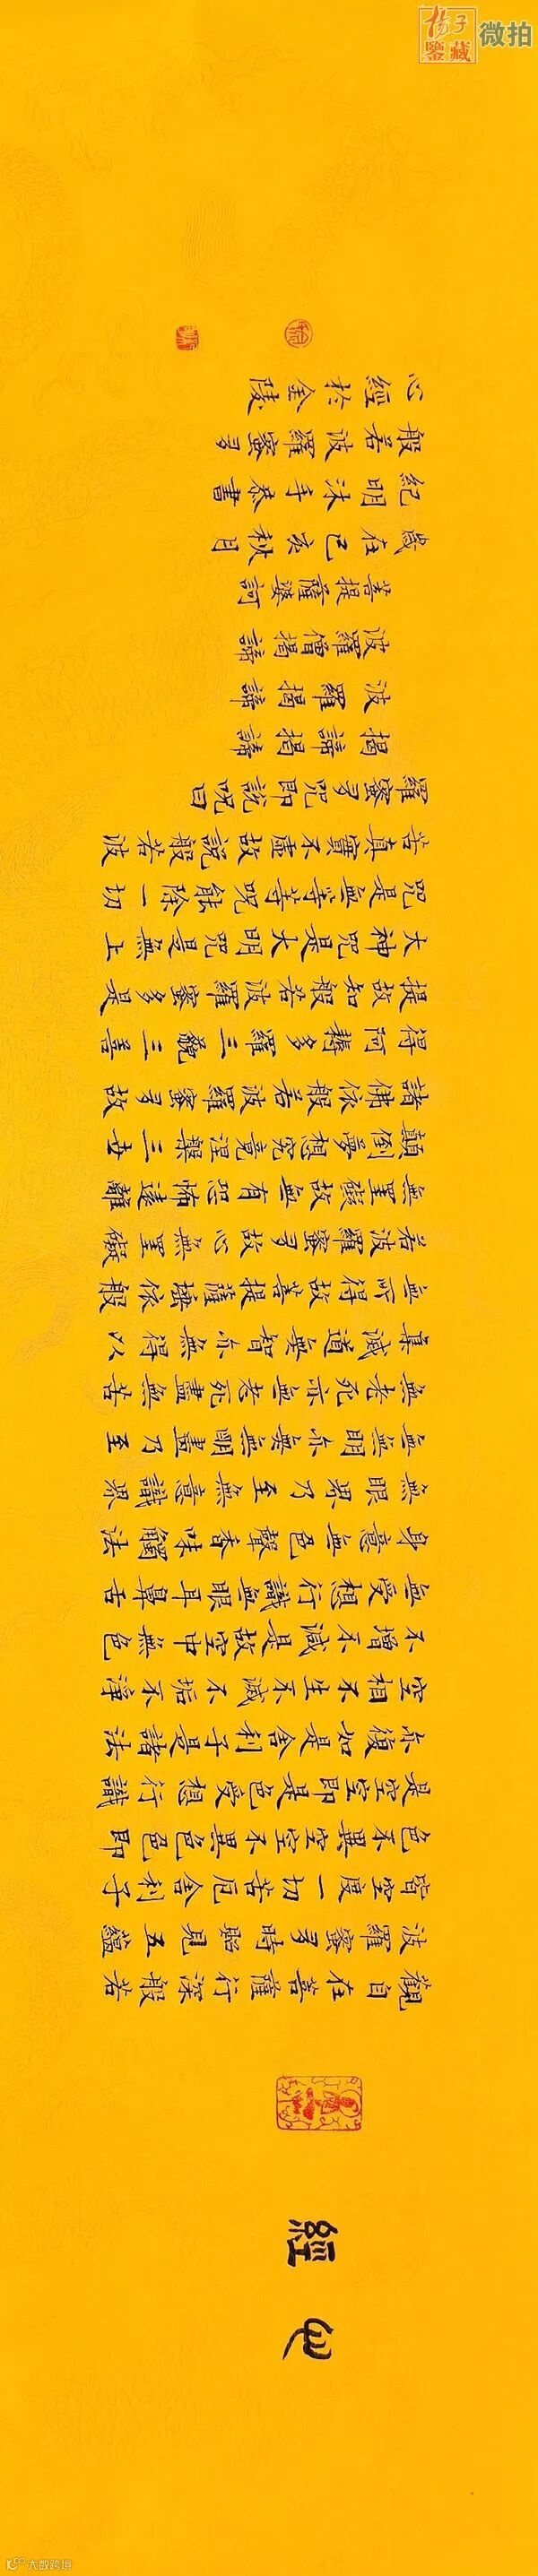 心經
觀自在菩薩行深般若
波羅蜜多時照見五蘊
皆空度一切苦厄舍利子
色不異空空不異色色即
是空空即是色受想行識
亦復如是舍利子是諸法
空相不生不滅不垢不淨
不增不減是故空中無色
無受想行識無眼耳鼻舌
身意無色聲香味觸法
無眼界乃至無意識界
無無明亦無無明盡乃至
無老死亦無老死盡無苦
集滅道無智亦無得以
無所得故菩提薩埵依般
若波羅蜜多故心無罣礙
無罣礙故無有恐怖遠離
顛倒夢想究竟涅槃三世
諸佛依般若波羅蜜多故
得阿耨多羅三藐三菩
提故知般若波羅蜜多是
大神咒是大明咒是無上
咒是無等等咒能除一切
苦真實不虛故說般若波
羅蜜多咒即說咒曰
揭諦揭諦
波羅揭諦
波羅僧揭諦
菩提薩婆訶
歲在己亥秋月
紀明沐手恭書
般若波羅蜜多
心經於金陵
揚子鑒藏 微拍
大数跨境